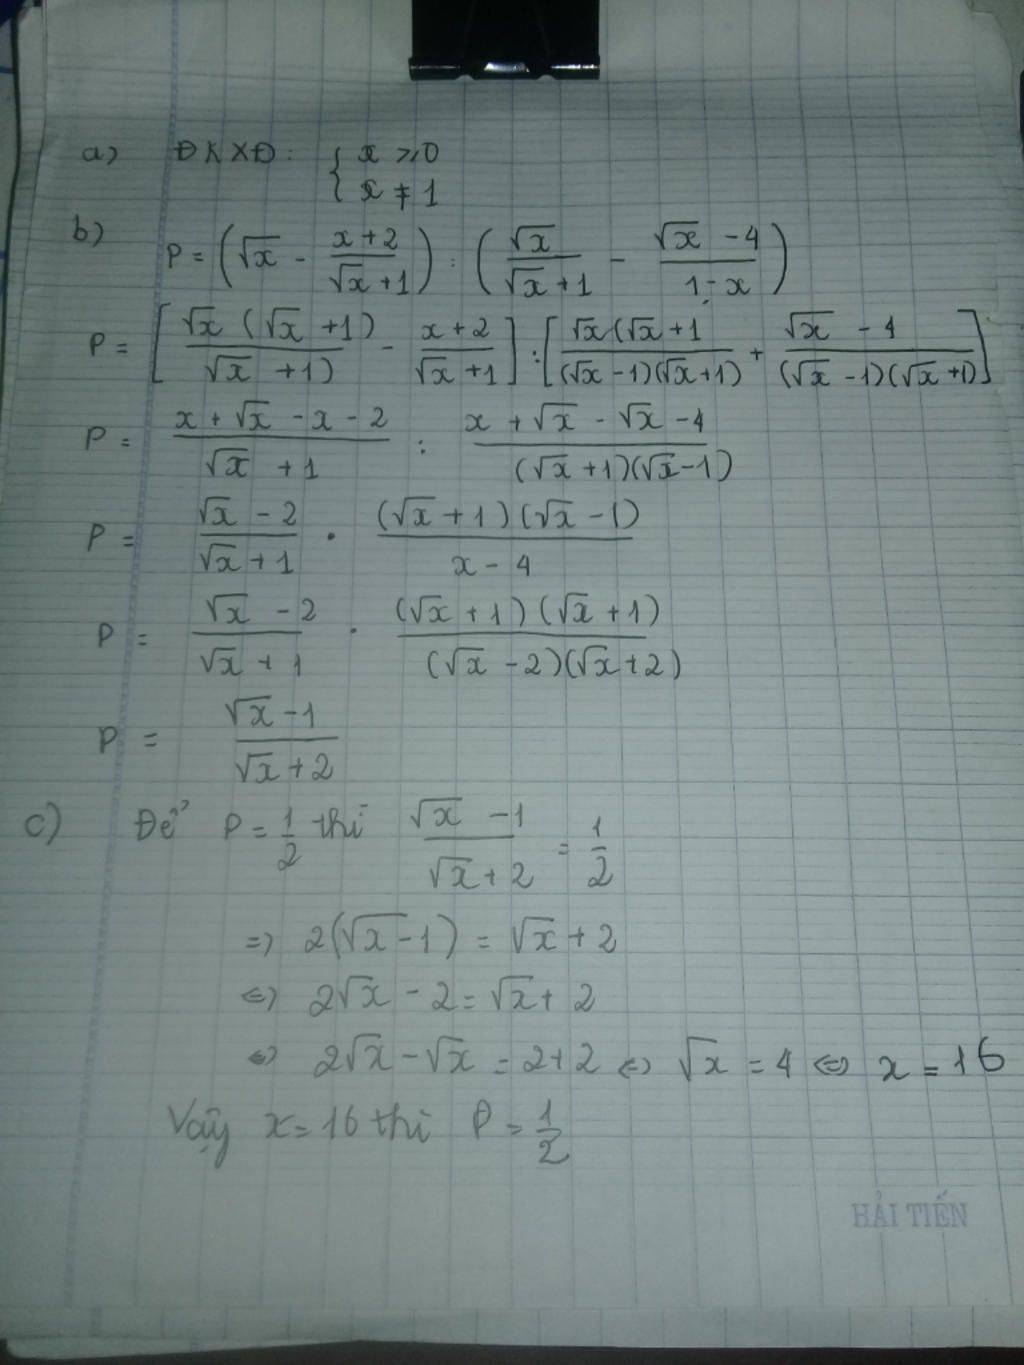 a) ĐKXĐ: { x ⩾ 0
x ≠ 1
b)
P = (√x - (x + 2)/(√x + 1)) : (√x/(√x + 1) - (√x - 4)/(1 - x))
P = [(√x (√x + 1))/(√x + 1) - (x + 2)/(√x + 1)] : [(√x(√x + 1)/((√x - 1)(√x + 1)) + (√x - 4)/((√x - 1)(√x + 1))]
P = (x + √x - x - 2)/(√x + 1) : (x + √x - √x - 4)/((√x + 1)(√x - 1))
P = (√x - 2)/(√x + 1) . ((√x + 1)(√x - 1))/(x - 4)
P = (√x - 2)/(√x + 1) . ((√x + 1)(√x + 1))/((√x - 2)(√x + 2))
P = (√x - 1)/(√x + 2)
c) Để P = 1/2 thì (√x - 1)/(√x + 2) = 1/2
=> 2(√x - 1) = √x + 2
<=> 2√x - 2 = √x + 2
<=> 2√x - √x = 2 + 2 <=> √x = 4 <=> x = 16
Vậy x = 16 thì P = 1/2
HẢI TIẾN